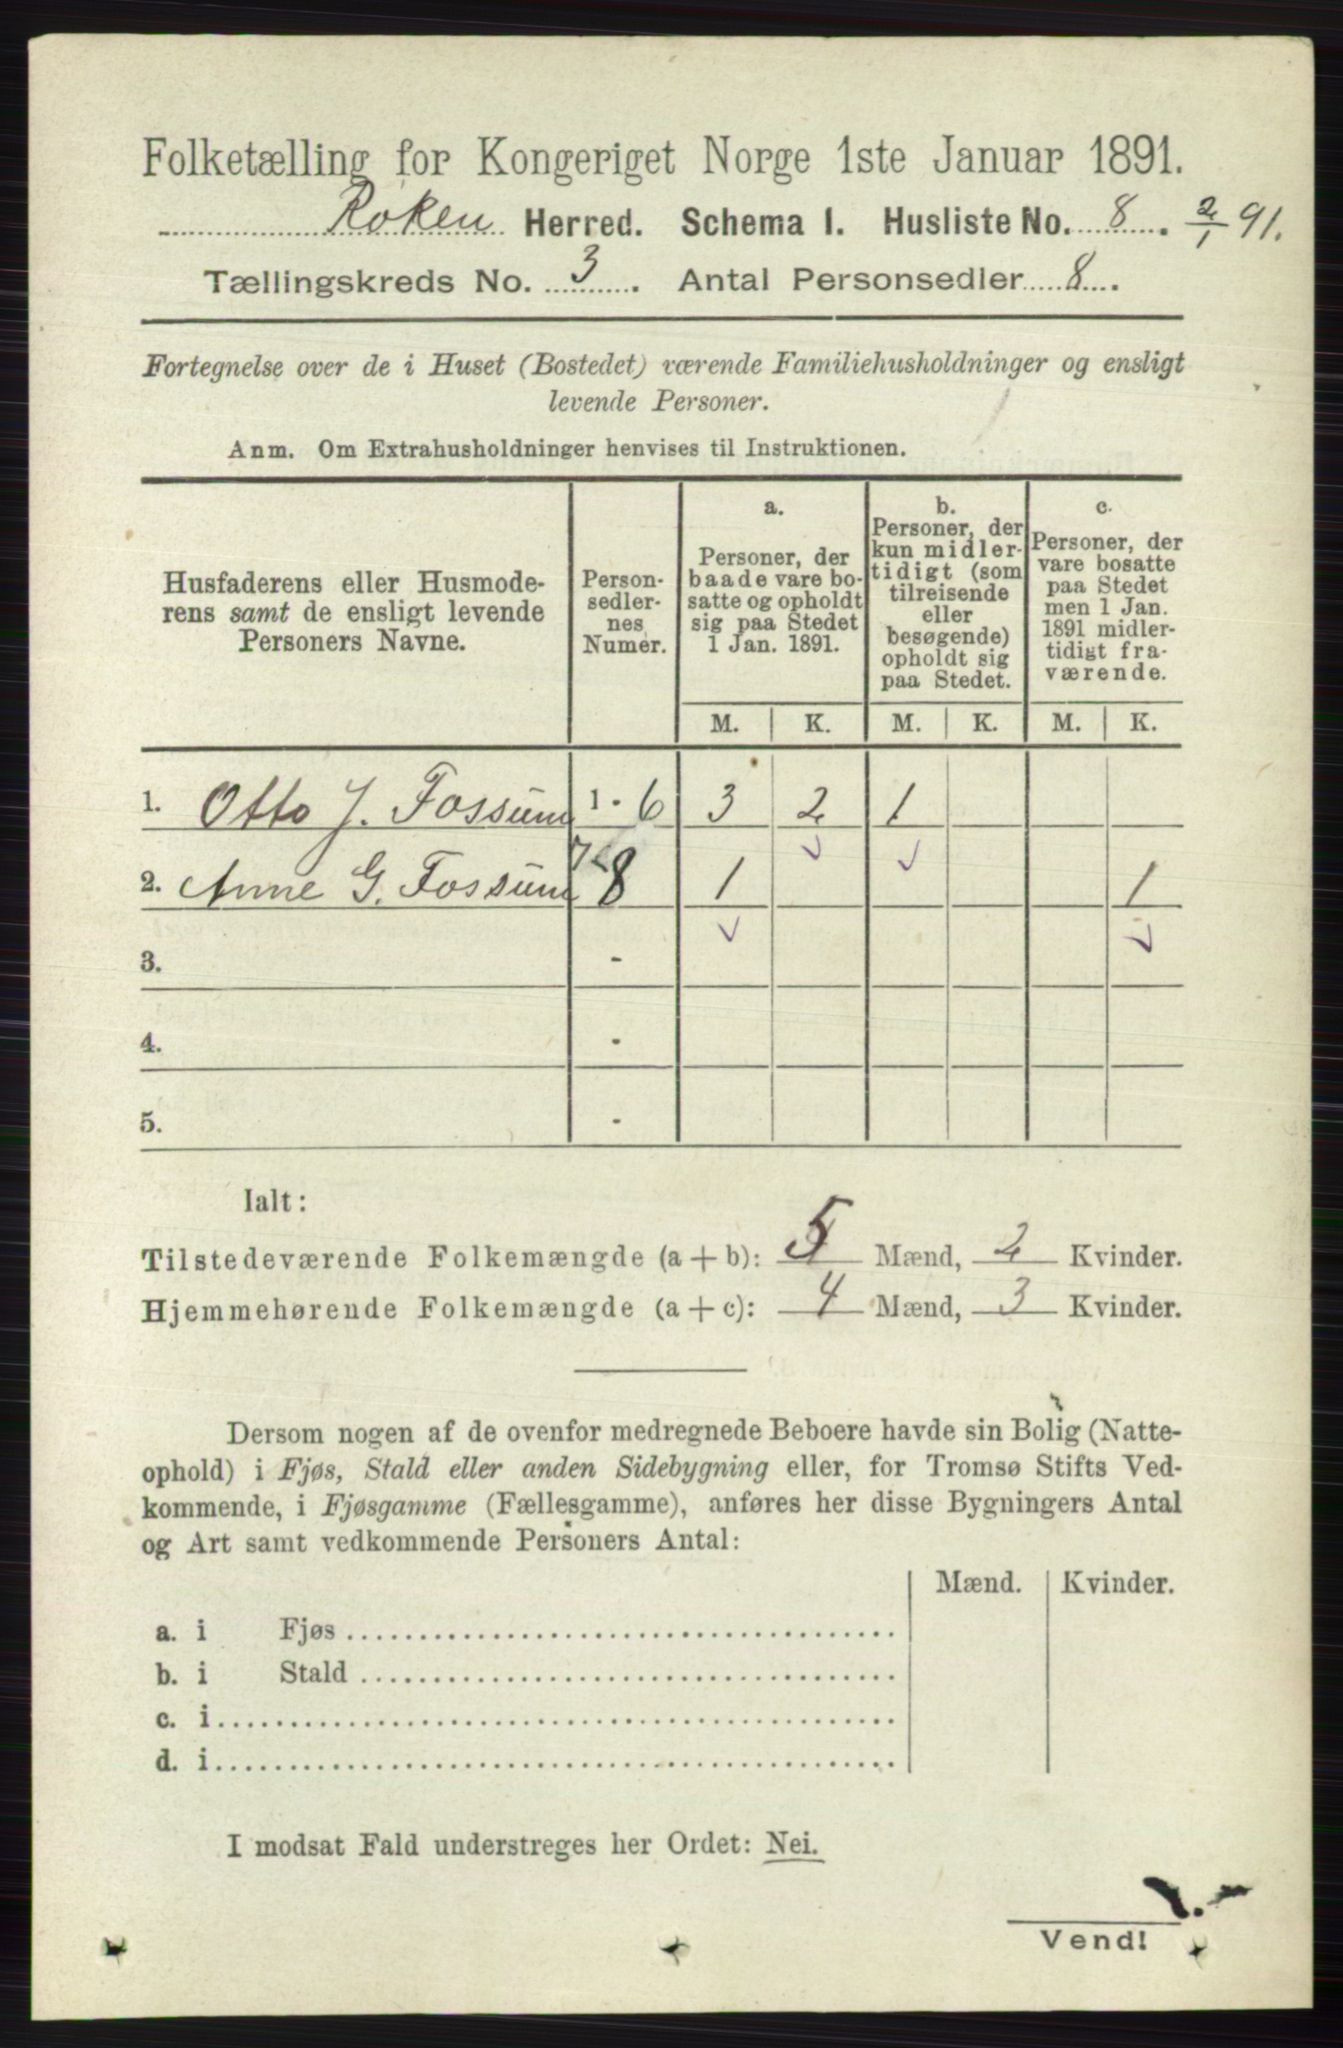 Folketælling for Kongeriget Norge 1ste Januar 1891.
Røken Herred. Schema I. Husliste No. 8. 2/1 91.
Tællingskreds No. 3. Antal Personsedler 8.
Fortegnelse over de i Huset (Bostedet) værende Familiehusholdninger og ensligt
levende Personer.
Anm. Om Extrahusholdninger henvises til Instruktionen.
Husfaderens eller Husmode-
rens samt de ensligt levende
Personers Navne.
Person-
sedler-
nes
Numer.
a.
Personer, der
baade vare bo-
satte og opholdt
sig paa Stedet
1 Jan. 1891.
b.
Personer, der
kun midler-
tidigt (som
tilreisende
eller
besøgende)
opholdt sig
paa Stedet.
c.
Personer, der
vare bosatte
paa Stedet
men 1 Jan.
1891 midler-
tidigt fra-
værende.
M. K. M. K. M. K.
1. Otto J. Fossum 1 - 6 3 2 1
2. Anne G. Fossum 7-8 1 1
3. -
4. -
5. -
Ialt:
Tilstedeværende Folkemængde (a + b): 5 Mænd, 2 Kvinder.
Hjemmehørende Folkemængde (a + c): 4 Mænd, 3 Kvinder.
Dersom nogen af de ovenfor medregnede Beboere havde sin Bolig (Natte-
ophold) i Fjøs, Stald eller anden Sidebygning eller, for Tromsø Stifts Ved-
kommende, i Fjøsgamme (Fællesgamme), anføres her disse Bygningers Antal
og Art samt vedkommende Personers Antal:
Mænd. Kvinder.
a. i Fjøs
b. i Stald
c. i
d. i
I modsat Fald understreges her Ordet: Nei.
Vend!